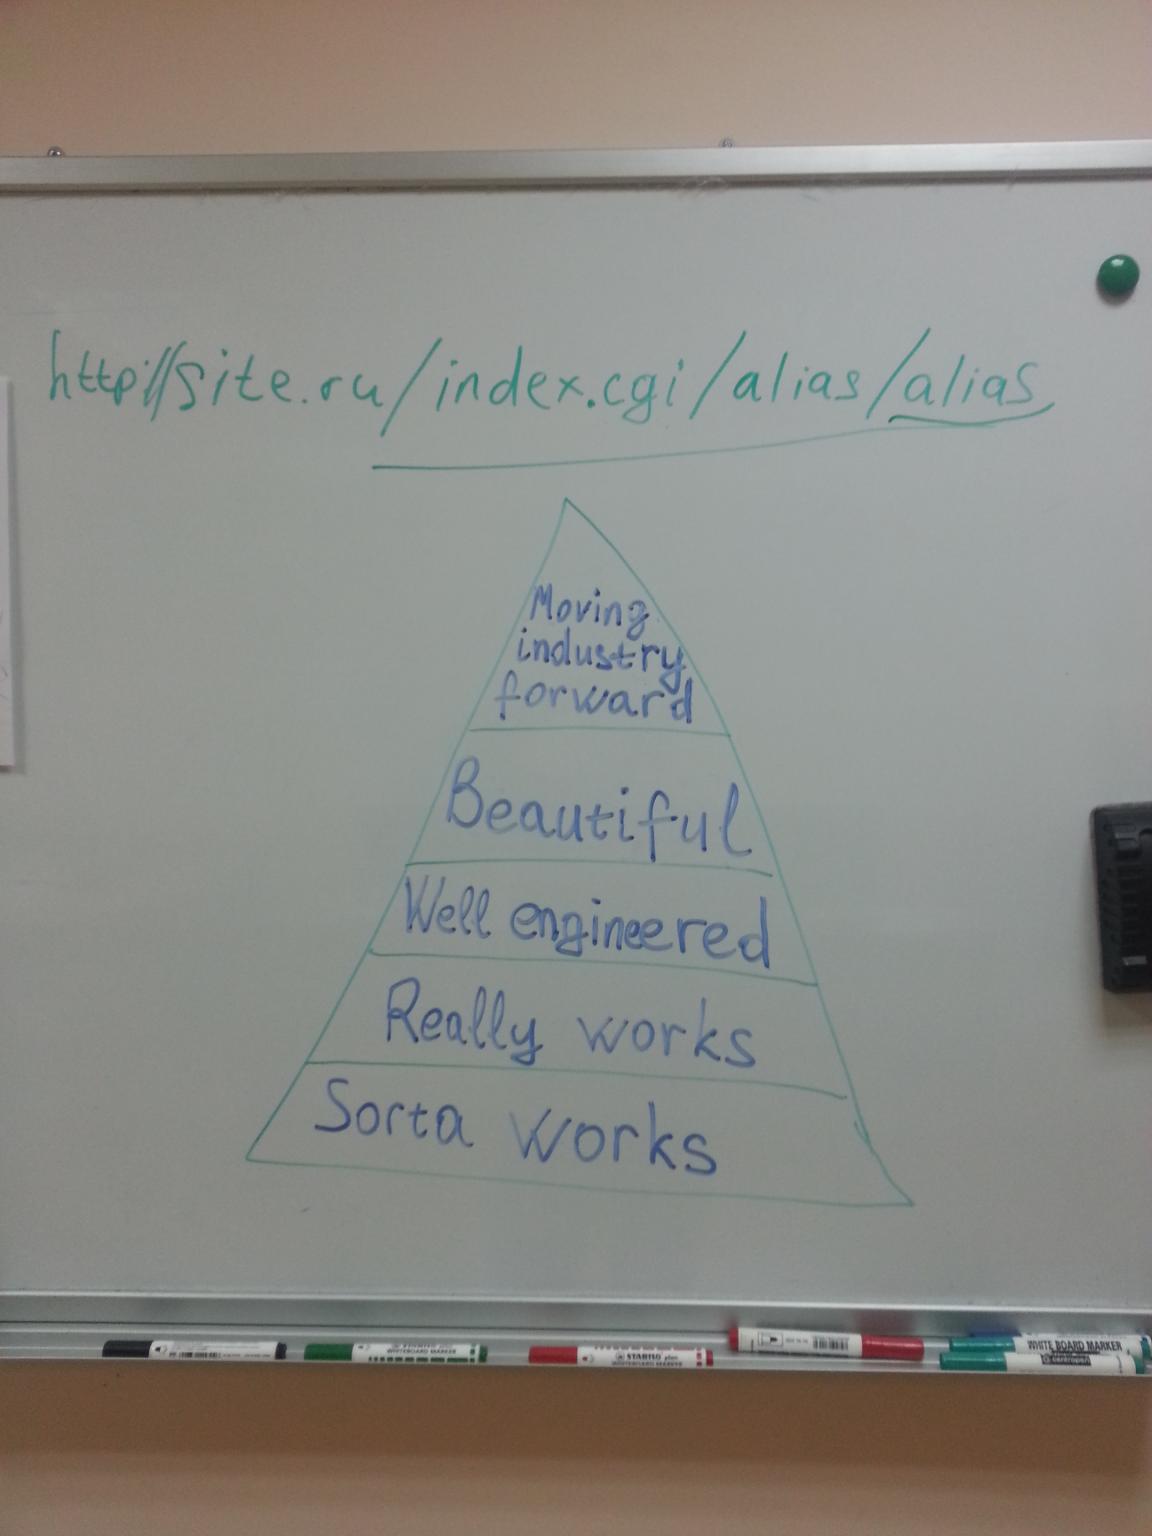 http://site.ru/index.cgi/alias/alias
Moving
industry
forward
Beautiful
Well engineered
Really works
Sorta works
STABILO plan
WHITEBOARD MARKER
WHITE BOARD MARKER
centropen